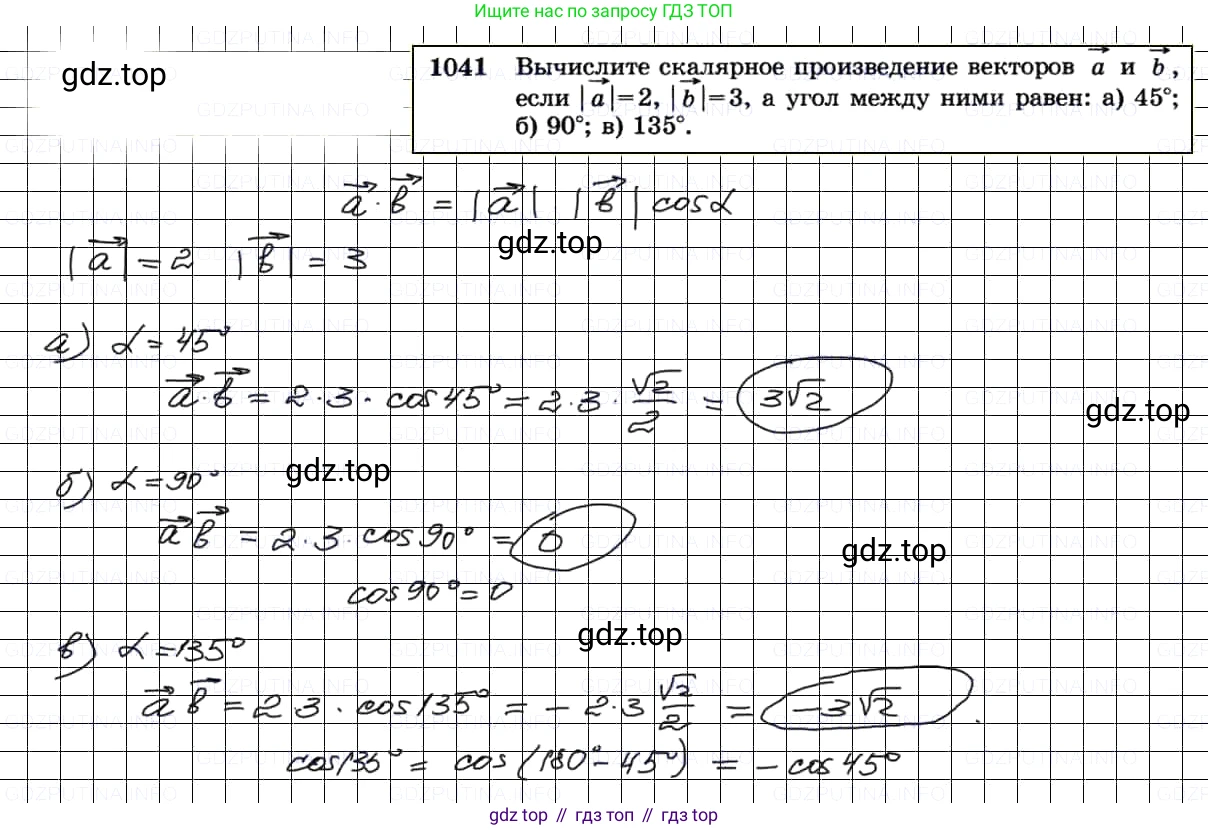 Ищите нас по запросу ГДЗ ТОП
gdz.top
1041 Вычислите скалярное произведение векторов a⃗ и b⃗,
если |a⃗|=2, |b⃗|=3, а угол между ними равен: а) 45°;
б) 90°; в) 135°.
a⃗ · b⃗ = |a⃗| · |b⃗| cos α
gdz.top
|a⃗| = 2 |b⃗| = 3
а) α = 45°
a⃗ · b⃗ = 2 · 3 · cos 45° = 2 · 3 · √2/2 = 3√2
gdz.top
gdz.top
б) α = 90°
a⃗ b⃗ = 2 · 3 · cos 90° = 0
gdz.top
cos 90° = 0
gdz.top
в) α = 135°
a⃗ b⃗ = 2 · 3 · cos 135° = − 2 · 3 √2/2 = −3√2.
cos 135° = cos (180° − 45°) = − cos 45°
gdz top // гдз топ // gdz top
GDZPUTINA.INFO